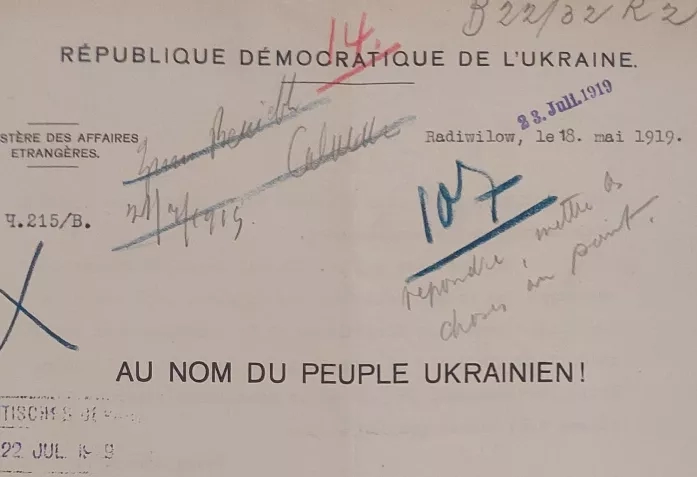 B 22/32 R 2
14.
RÉPUBLIQUE DÉMOCRATIQUE DE L'UKRAINE.
23. Juil. 1919
STÈRE DES AFFAIRES
ETRANGÈRES.
Radiwilow, le 18. mai 1919.
Ч.215/B.
107
répondre, mettre
choses au point.
AU NOM DU PEUPLE UKRAINIEN!
TISCHES
22 JUL